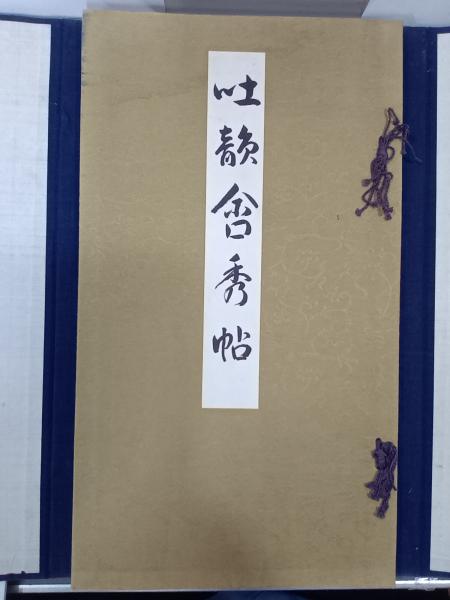 吐韻含秀帖